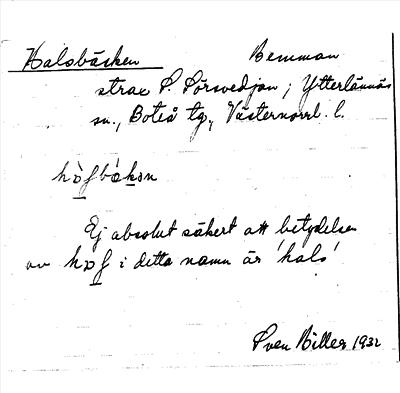 Halsbäcken Bemman
strax S. Sörvedjan; Ytterlännäs
sn., Boteå tg., Västernorrl. l.
Ej absolut säkert att betydelsen
av i detta namn är 'hals'
Sven Biller 1932